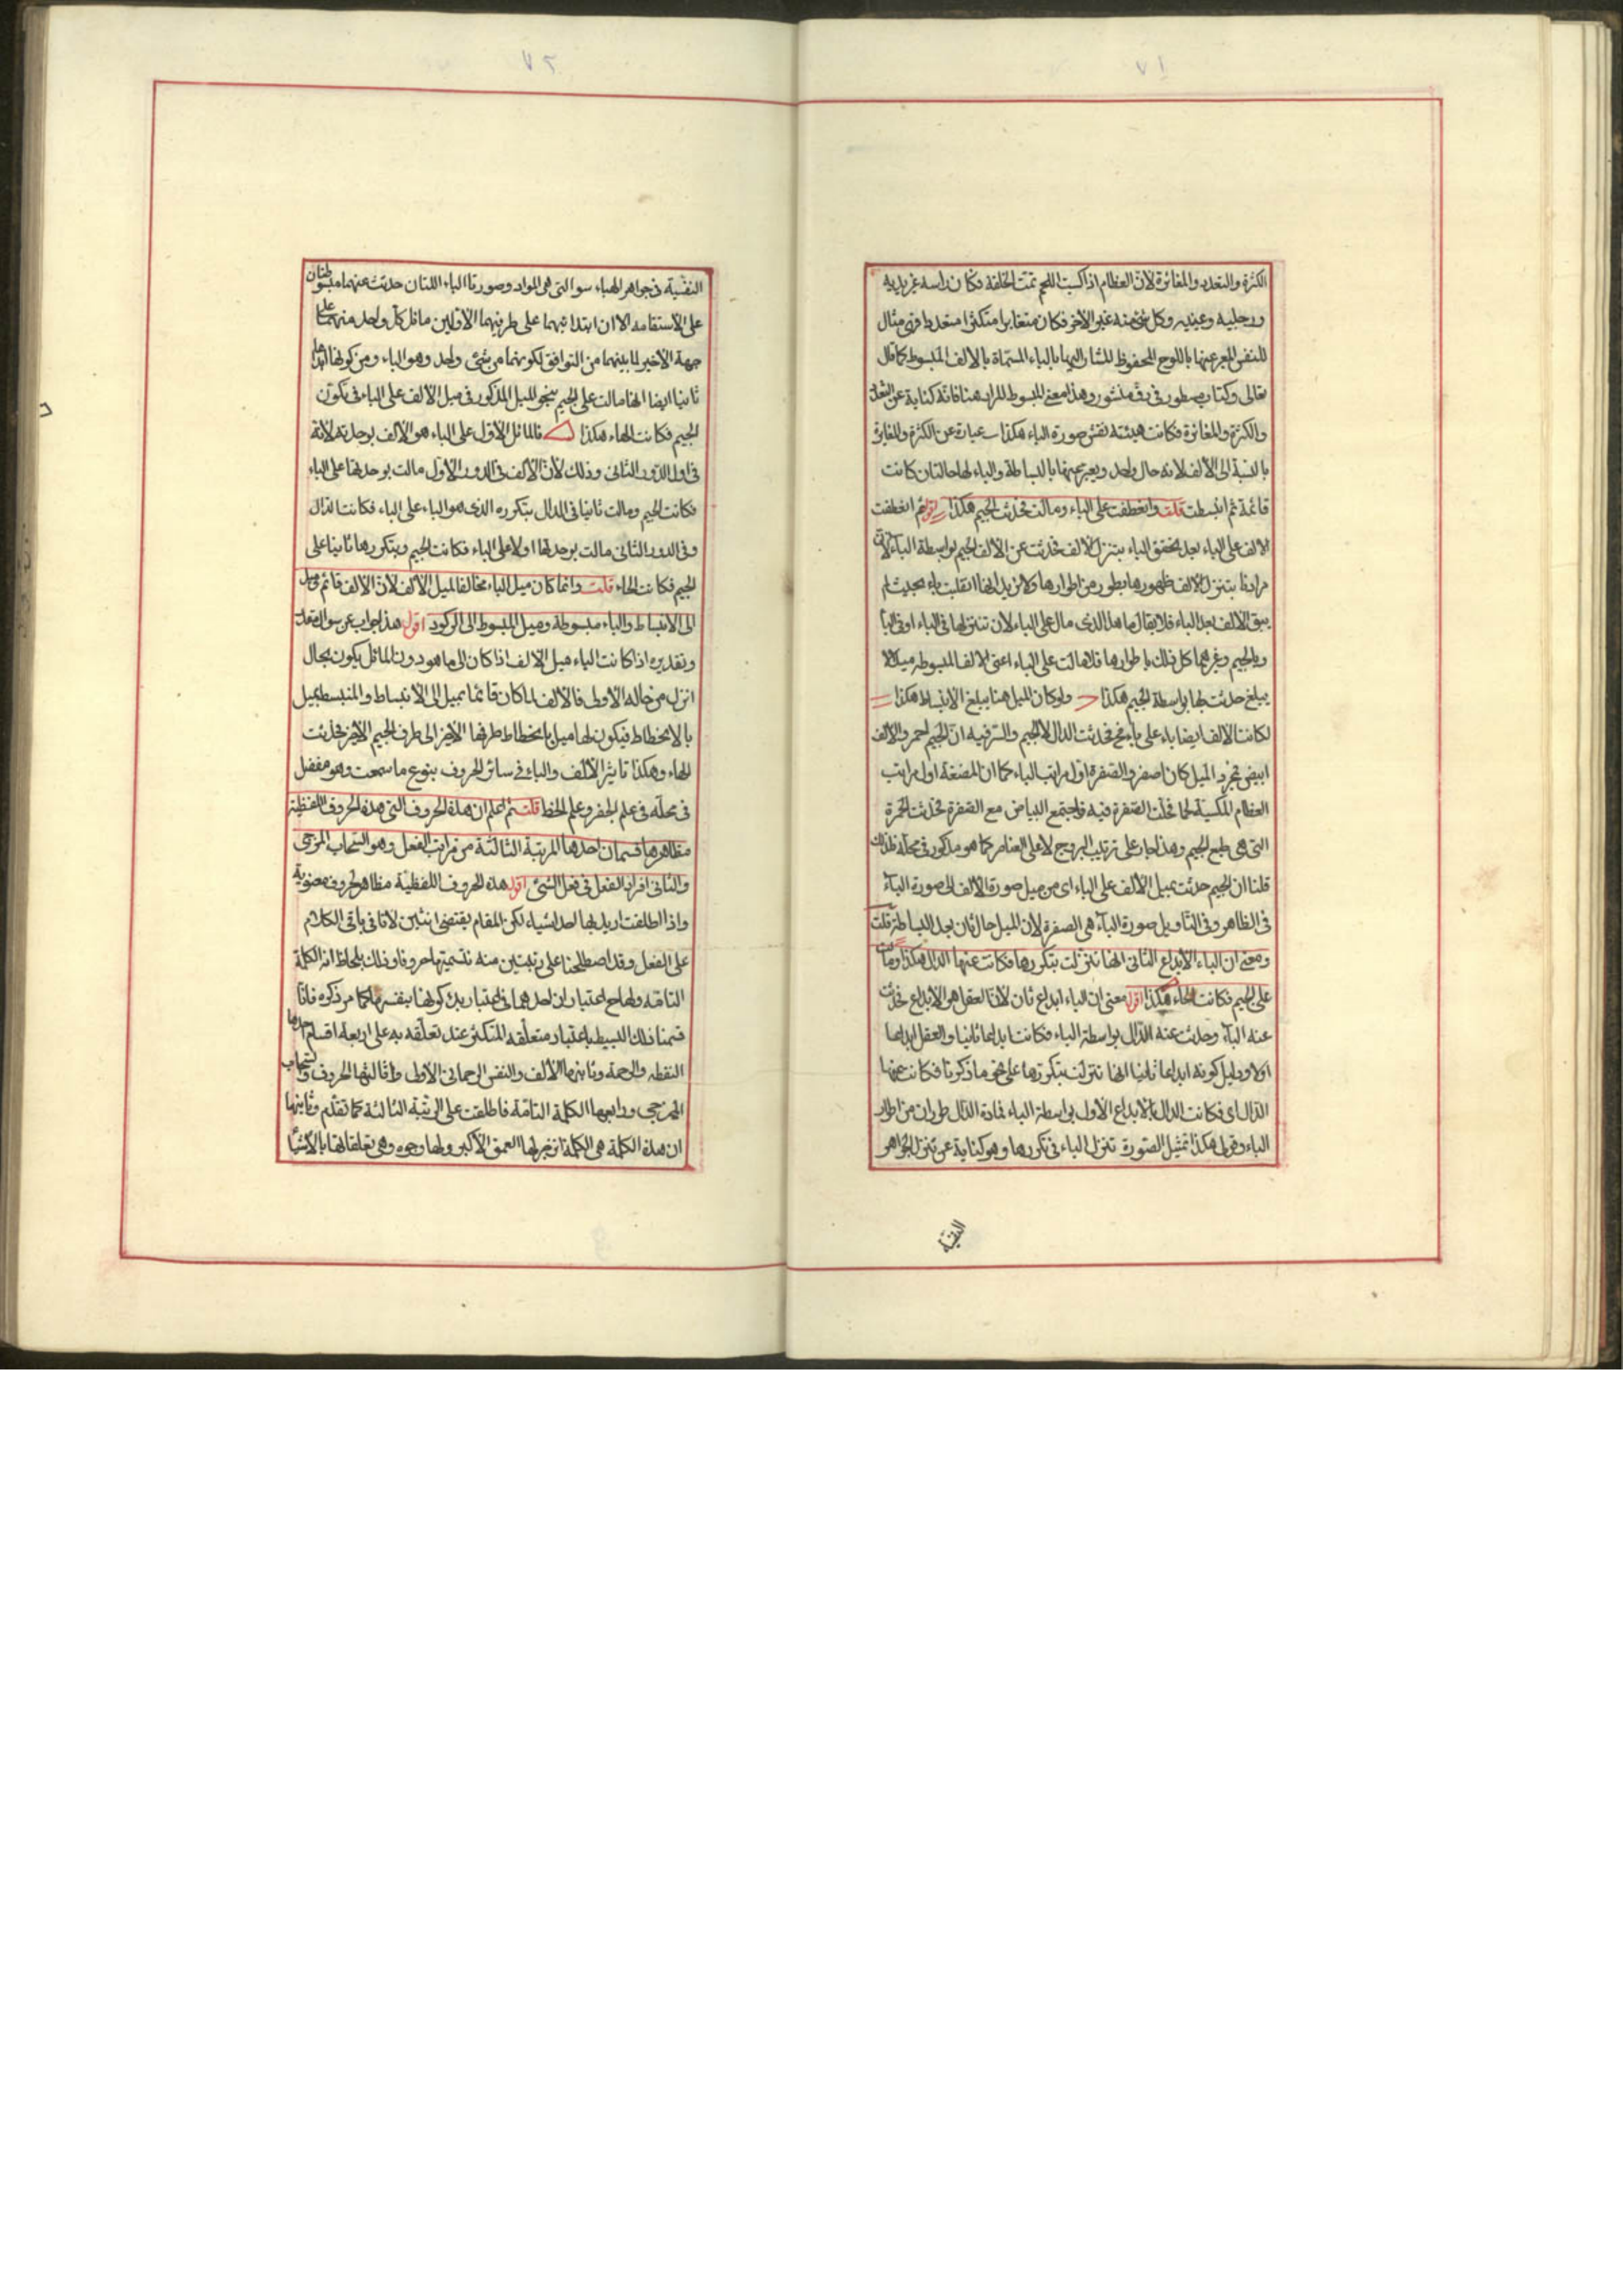 ٧١
الكثرة والتعدد والمغائرة لان العظام اذا كسيت اللحم تمت الخلقة فكان راسه غير يديه
ورجليه وعينيه وكل شئ منه غير الاخر فكان متغايرا متكثرا متعددا فهى مثال
للنفس المعبر عنها باللوح المحفوظ المشار اليها بالباء المسماة بالالف المبسوط كما قال
تعالى وكتاب مسطور فى رق منشور وهذا معنى المبسوط المراد هنا فانه كناية عن التعدد
والكثرة والمغائرة فكانت هيئته نقش صورة الباء هكذا ـ عبارة عن الكثرة والمغايرة
بالنسبة الى الالف لانه حال واحد ويعبر عنها بالبساطة والباء لها حالتان كانت
قائمة ثم انبسطت قلت وانعطفت على الباء ومالت فحدثت الجيم هكذا اقول ثم انعطفت
الالف على الباء بعد تحقق الباء بتنزل الالف فحدثت عن الالف الجيم بواسطة الباء لان
مرادنا بتنزل الالف ظهورها بطور من اطوارها ولا نريد انها انقلبت باء بحيث لم
يبق الالف بعد الباء فلا يقال ما هذا الذى مال على الباء لان تنزلها فى الباء او فى الباء
وبالجيم وغيرهما كل ذلك باطوارها فلما مالت على الباء اعنى الالف المبسوطة ميلا لا
يبلغ حدثت بها بواسطة الجيم هكذا ولو كان الميل هنا يبلغ الانبساط هكذا
لكانت الالف ايضا باء على باء فحدثت الدال لا الجيم والسر فيه ان الجيم احمر والالف
ابيض بمجرد الميل كان اصفر والصفرة اول مراتب الباء كما ان المضغة اول مراتب
العظام المكسية لحما فحلت الصفرة فيه فاجتمع البياض مع الصفرة فحدثت الحمرة
التى هى طبع الجيم وهذا جار على ترتيب البروج لا على العناصر كما هو مذكور فى محله فلذلك
قلنا ان الجيم حدثت بميل الالف على الباء اى من ميل صورة الالف الى صورة الباء
فى الظاهر وفى التاويل صورة الباء هى الصفرة لان الميل حال ثان بعد البساطة قلت
ومعنى ان الباء الابداع الثانى انها تنزلت بتكررها فكانت عنها الدال هكذا ومالت
على الجيم فكانت الحاء هكذا اقول معنى ان الباء ابداع ثان لان العقل هو الابداع فحدثت
عنه الباء وحدثت عنه الدال بواسطة الباء فكانت ابداعا ثانيا والعقل ابداعا
اولا ودليل كونه ابداعا ثانيا انها تنزلت بتكررها على نحو ما ذكرنا فكانت عنها
الدال اى فكانت الدال بالابداع الاول بواسطة الباء فمادة الدال طوران من اطوار
الباء وقولى هكذا تمثيل لصورة تنزل الباء فى تكررها وهو كناية عن تنزل الجواهر
النفسية
٧٢
النفسية فى جواهر الهباء سوا التى هى المواد وصورتا الباء اللتان حدثت عنهما مبسوطتان
على الاستقامة الا ان ابتدائيهما على طرفيهما الاولين مائل كل واحد منهما على
جهة الاخير لما بينهما من التوافق لكونهما من شئ واحد وهو الباء ومن كونها ابداعا
ثانيا ايضا انها مالت على الجيم بنحو الميل المذكور فى ميل الالف على الباء فى تكون
الجيم فكانت الهاء هكذا فالمائل الاول على الباء هو الالف بوحدته لانه
فى اول الدور الثانى وذلك لان الالف فى الدور الاول مالت بوحدتها على الباء
فكانت الجيم ومالت ثانيا فى الدال بتكرره الذى هو الباء على الباء فكانت الدال
وفى الدور الثانى مالت بوحدتها اولا على الباء فكانت الجيم وبتكررها ثانيا على
الجيم فكانت الحاء قلت وانما كان ميل الباء مخالفا لميل الالف لان الالف قائم وميل
الى الانبساط والباء مبسوطة وميل المبسوط الى الركود اقول هذا جواب عن سوال مقدر
وتقديره اذا كانت الباء ميل الالف اذا كان الى ما هو دون المائل يكون بحال
انزل من حاله الاولى فالالف لما كان قائما يميل الى الانبساط والمنبسط يميل
بالانحطاط فيكون لها ميل بانحطاط طرفها الاخر الى طرف الجيم الاخر فحدثت
الهاء وهكذا تاثير الالف والباء فى سائر الحروف بنوع ما سمعت وهو مفصل
فى محله فى علم الجفر وعلم الخط قلت ثم اعلم ان هذه الحروف التى هذه الحروف اللفظية
مظاهرها قسمان احدها المرتبة الثالثة من مراتب الفعل وهو السحاب المزجى
والثانى افراد الفعل فى فعل الشئ اقول هذه الحروف اللفظية مظاهر لحروف معنوية
واذا اطلقت اريد بها احد اشياء لكن المقام يقتضى اثنين لانا فى باقى الكلام
على الفعل وقد اصطلحنا على رتبتين منه نسميتها حروفا وذلك بلحاظ انه الكلمة
التامة ولها ح اعتباران احدهما فى اعتبار يدك كونها بنفسها كما مر ذكره فانا
قسمنا ذلك البسيط باعتبار متعلقه المتكثر عند تعلقه به على اربعة اقسام احدها
النقطة والرحمة وثانيها الالف والنفس الرحمانى الاولى وثالثها الحروف والسحاب
المزجى ورابعها الكلمة التامة فاطلقت على الرتبة الثالثة كما تقدم وثانيها
ان هذه الكلمة هى الكلمة انزجر لها العمق الاكبر ولها وجوه وهى تعلقاتها بالاشيا